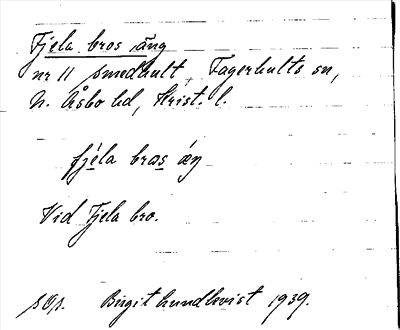 Fjela bros äng
nr 11 Smedhult, Fagerhults sn,
N. Åsbo hd, Krist. l.
fjéla bras äŋ
Vid Fjela bro.
Birgit Lundkvist 1939.